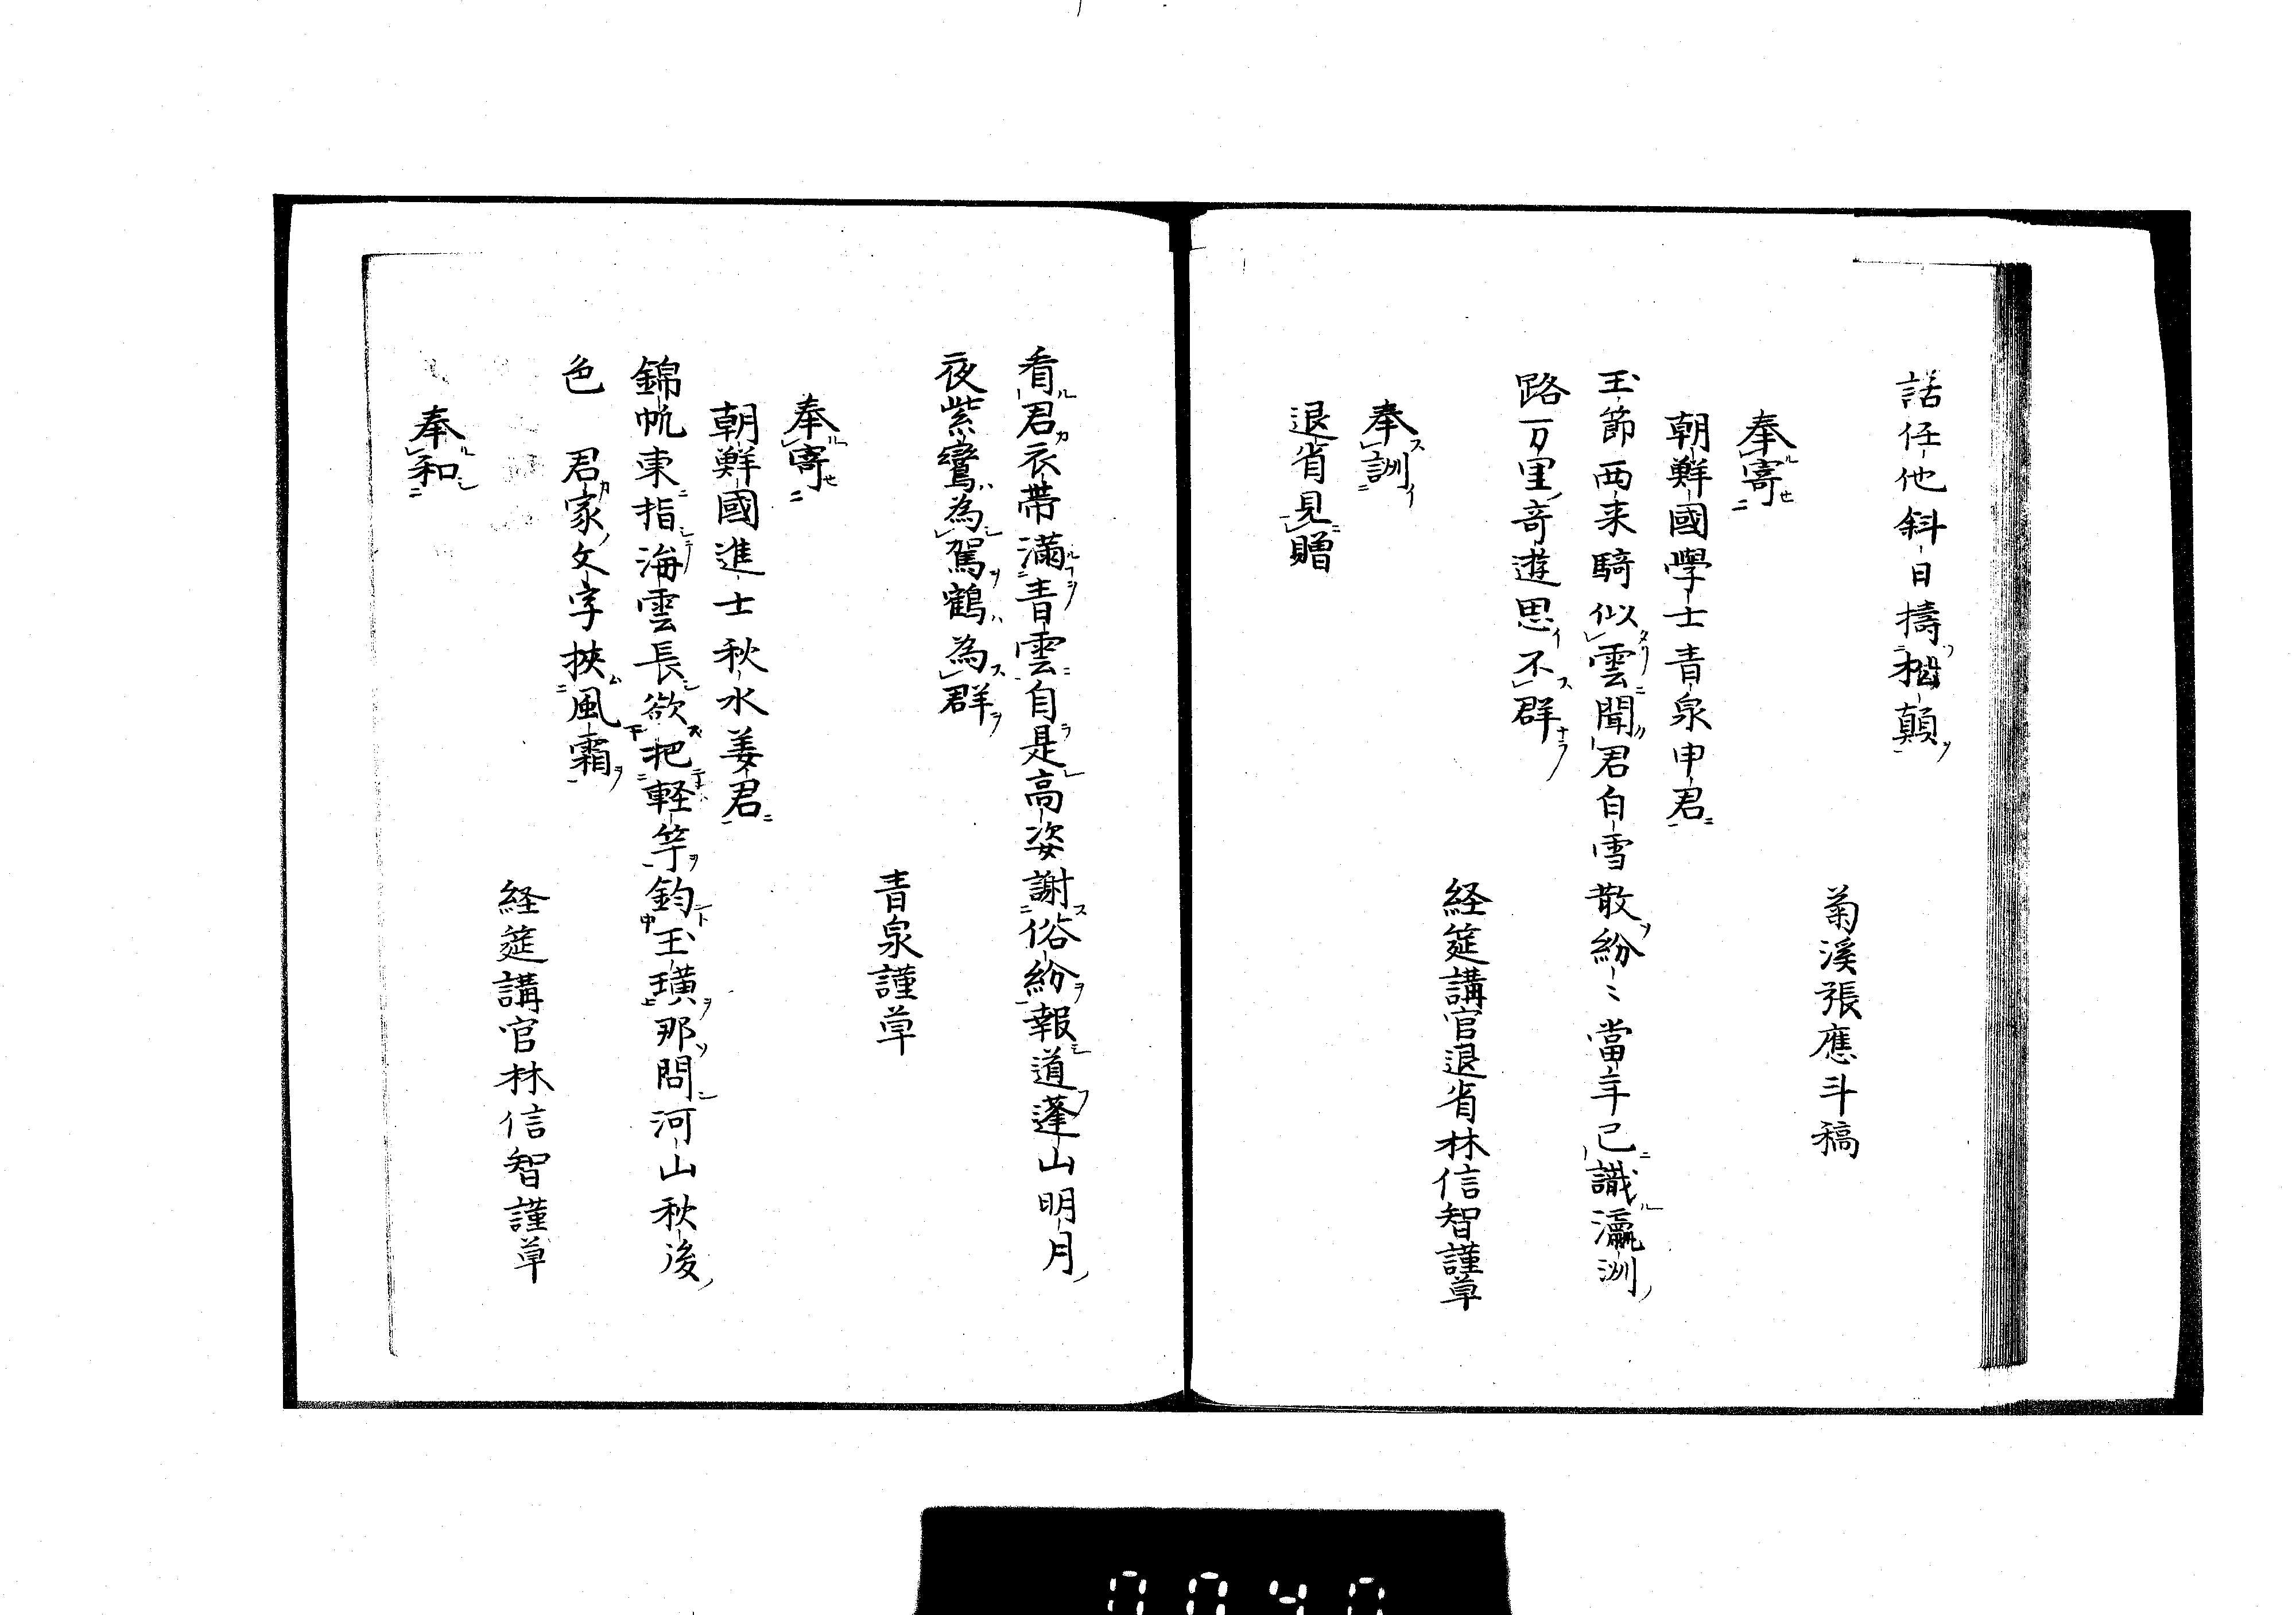 話任他斜日擣松顛
菊溪張應斗稿
奉寄
朝鮮國學士青泉申君
玉節西来騎似雲聞君白雪散紛〻當年已識瀛洲
路万里奇遊思不群
経筵講官退省林信智謹草
奉詶
退省見贈
看君衣帶滿青雲自是高姿謝俗紛報道蓬山明月
夜紫鸞為駕鶴為群
青泉謹草
奉寄
朝鮮國進士秋水姜君
錦帆東指海雲長欲把軽竿釣玉璜那問河山秋後
色 君家文字挾風霜
経筵講官林信智謹草
奉和